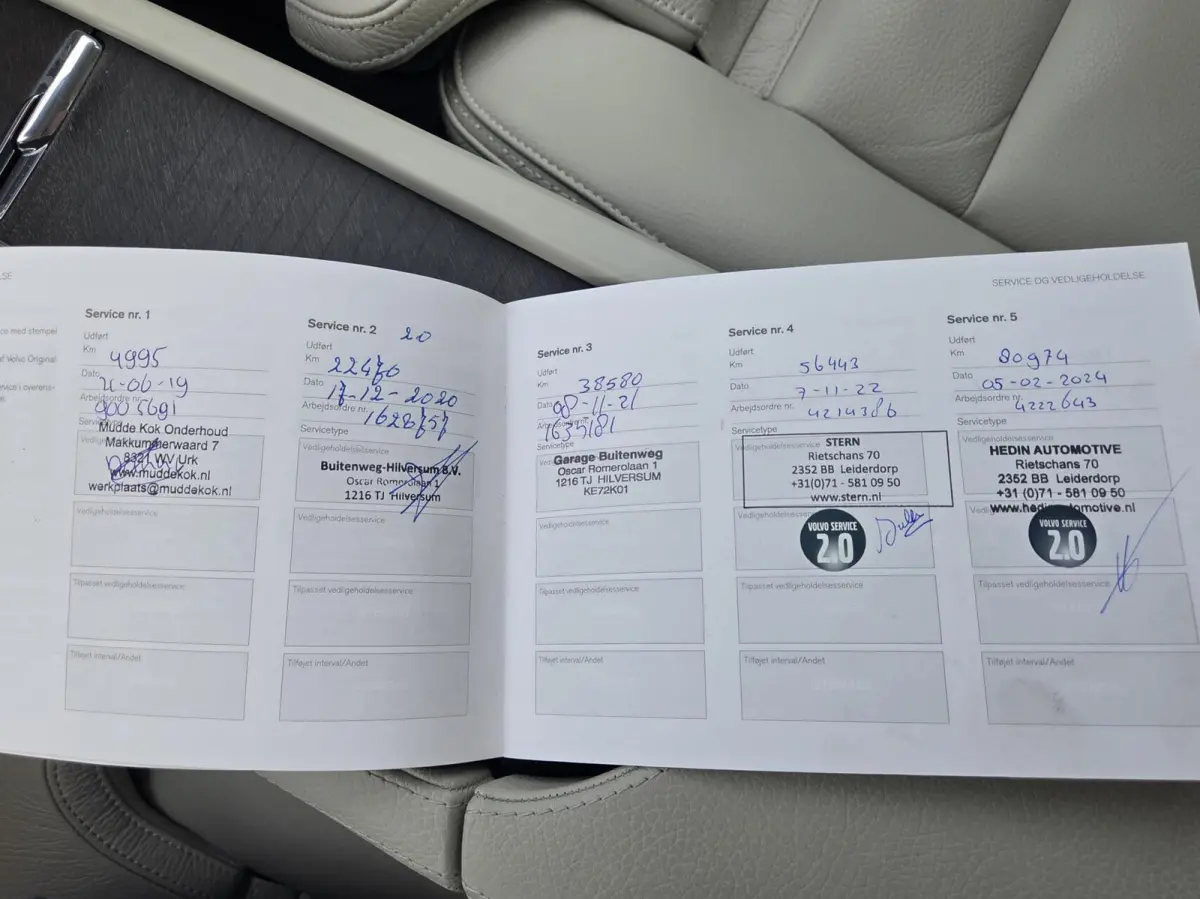 SERVICE OG VEDLIGEHOLDELSE
Service nr. 1
Udført
Km 4995
Dato 21-06-19
Arbejdsordre nr.
9005691
Mudde Kok Onderhoud
Makkummerwaard 7
8321 WV Urk
www.muddekok.nl
werkplaats@muddekok.nl
Vedligeholdelsesservice
Tilpasset vedligeholdelsesservice
Tilføjet interval/Andet
Service nr. 2 20
Udført
Km 22470
Dato 17-12-2020
Arbejdsordre nr.
1628757
Servicetype
Vedligeholdelsesservice
Buitenweg-Hilversum B.V.
Oscar Romerolaan 1
1216 TJ Hilversum
Vedligeholdelsesservice
Tilpasset vedligeholdelsesservice
Tilføjet interval/Andet
Service nr. 3
Udført
Km 38580
Dato 08-11-21
Arbejdsordre nr.
Servicetype
Garage Buitenweg
Oscar Romerolaan 1
1216 TJ HILVERSUM
KE72K01
Vedligeholdelsesservice
Tilpasset vedligeholdelsesservice
Tilføjet interval/Andet
Service nr. 4
Udført
Km 56443
Dato 7-11-22
Arbejdsordre nr. 4214386
Servicetype
Vedligeholdelsesservice
STERN
Rietschans 70
2352 BB Leiderdorp
+31(0)71 - 581 09 50
www.stern.nl
VOLVO SERVICE
2.0
Tilpasset vedligeholdelsesservice
Tilføjet interval/Andet
Service nr. 5
Udført
Km 80974
Dato 05-02-2024
Arbejdsordre nr. 4222643
Servicetype
Vedligeholdelsesservice
HEDIN AUTOMOTIVE
Rietschans 70
2352 BB Leiderdorp
+31 (0)71 - 581 09 50
www.hedinautomotive.nl
VOLVO SERVICE
2.0
Tilpasset vedligeholdelsesservice
Tilføjet interval/Andet